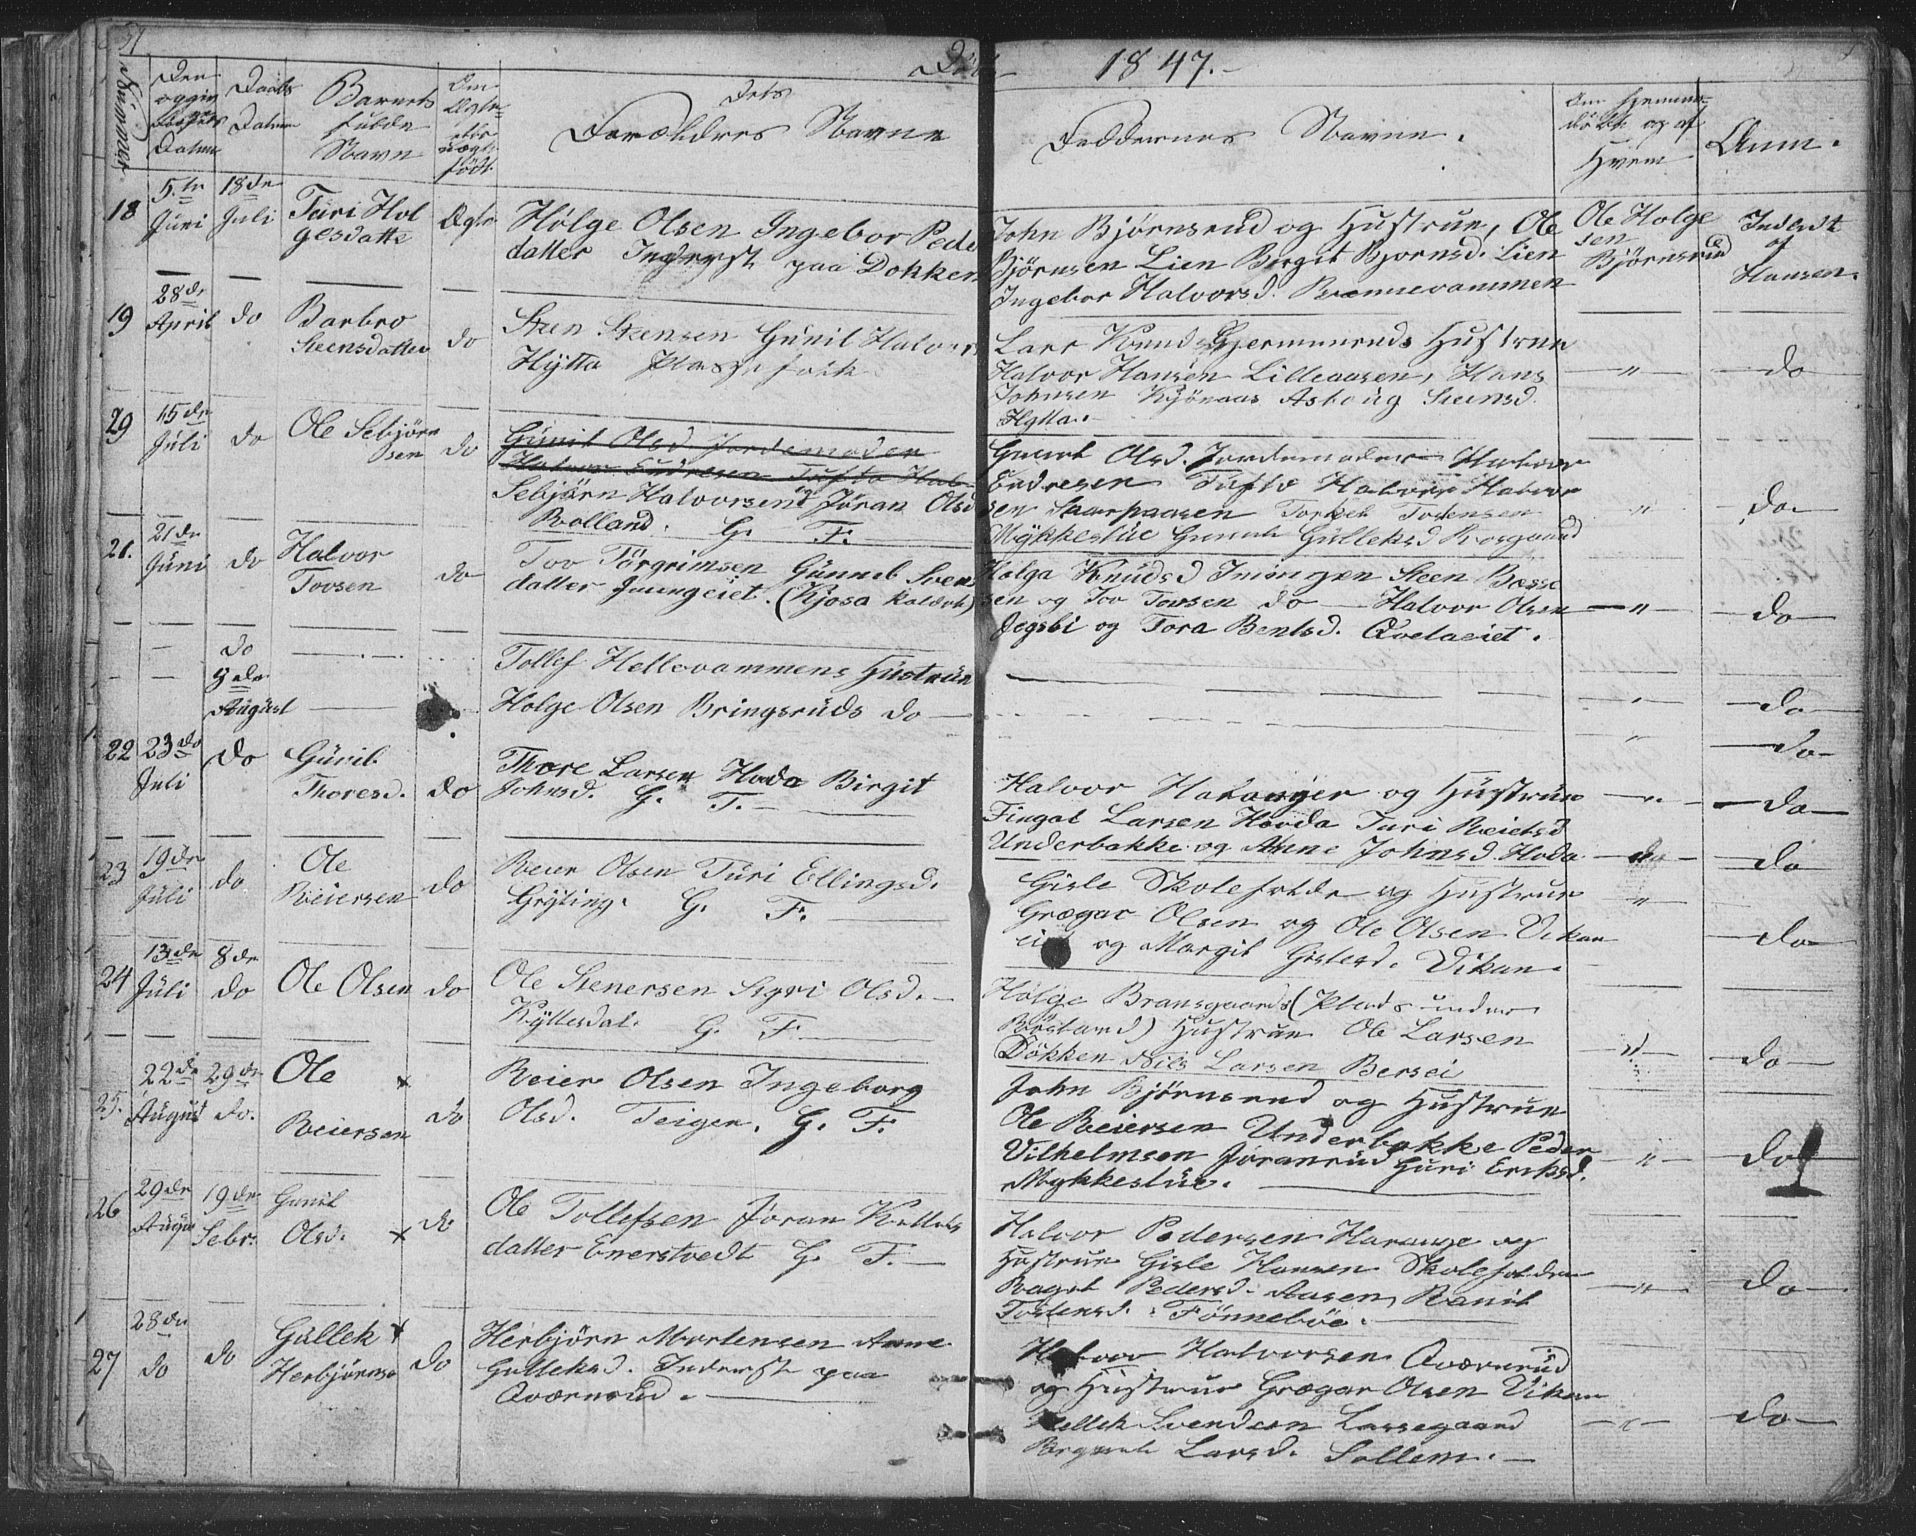 51
1847.
Nummer
Den
opgivne
Fødsels
Datum
Daabs
Datum
Barnets
fulde
Navn
Om
Ægte
eller
uægte
født
Dets
Forældres Navne
Faddernes Navne.
Om hjemme-
døbt og af
Hvem
Anm.
18
5.te
Juni
18de
Juli
Turi Hol
gesdatte
Ægte
Holge Olsen Ingebor Peds
datter Inderst paa Dokken
John Bjørnsrud og Hustrue, Ole
Bjørnsen Lien Birgit Bjornsd. Lien
Ingebor Halvorsd. Rennevammen
Ole Holge
sen
Bjørnsrud
Indledt
af
Hansen.
19
28de
April
do
Barbro
Steensdatter
do
Sten Stensen Gunil Halvors
Hytta Pladsfolk
Lars Knuds Hustrue
Halvor Hansen Lilleaasen, Hans
Johnsen Kjønaas Asboug Steensd.
Hytta.
"
do
29
15de
Juli
do
Ole Sebjørn
sen
do
Gunil Olsd Jordemoder
Halvor Endresen Tufto Hal
Sebjörn Halvorsen og Jöran Olsd
Rolland. G. F.
Gunil Olsd. Jordemoder Halvor
Endresen Tufto Halvor Halvor
sen Torkel Tovsen
Mykkestue Gunil Gulleksd
"
do
21.
21de
Juni
do
Halvor
Tovsen
do
Tov Törgrimsen Gunneb Svens
datter (Kjosa kaldet)
Holga Knudsd Steen
sen og Tov Tovsen do Halvor Olsen
Jegsbi og Tora Bentsd.
"
do
do
Tollef Hellevammens Hustrue
"
do
August
Holge Olsen Bringsruds do
"
do
22
23de
Juli
do
Gunil
Thoresd.
do
Thore Larsen Hoda Birgit
Johnsd. G. F.
Halvor og Hustrue
Fingal Larsen Hovda Turi Reiersd
Underbakke og Anne Johnsd. Hoda
"
do
23
19de
Juli
do
Ole
Reiersen
do
Reier Olsen Turi Ellingsd.
Gryting. G. F.
Gisle Skolefolde og Hustrue
Grægar Olsen og Ole Olsen Vikan
og Margit Gislesd. Vikan.
do
"
do
do
24
13de
Juli
8de
do
Ole Olsen
do
Ole Stenersen Sigri Olsd.
Kyttesdal. G. F.
Holge Bransgaards (Plads under
) Hustrue Ole Larsen
Dokken Nils Larsen Bersei
"
do
25.
22de
August
29de
do.
Ole
Reiersen
do
Reier Olsen Ingeborg
Olsd. Teigen. G. F.
John Bjørnsrud og Hustrue
Ole Reiersen Underbakke Peder
Vilhelmsen Joranrud Guri Eriksd.
Mykkestue.
"
do
26
29de
August
19de
Sebr.
Gunil
Olsd.
do
Ole Tollefsen Jöran Kittels
datter Enerstvedt G. F.
Halvor Pedersen Harange og
Hustrue Gisle Hansen Skolefolden
Ragel Pedersd. Aasen, Ranil
Tostensd. Fönneböe.
"
do
27
28de
do
do
Gullek
Herbjörnse
do
Herbjörn Mortensen Anne
Gulleksd. Inderst paa
Qværnrud.
Halvor Halvorsen Qværnrud
og Hustrue Grægar Olsen Vikan
Svendsen Lassegaard
Larsd. Sollem.
"
do